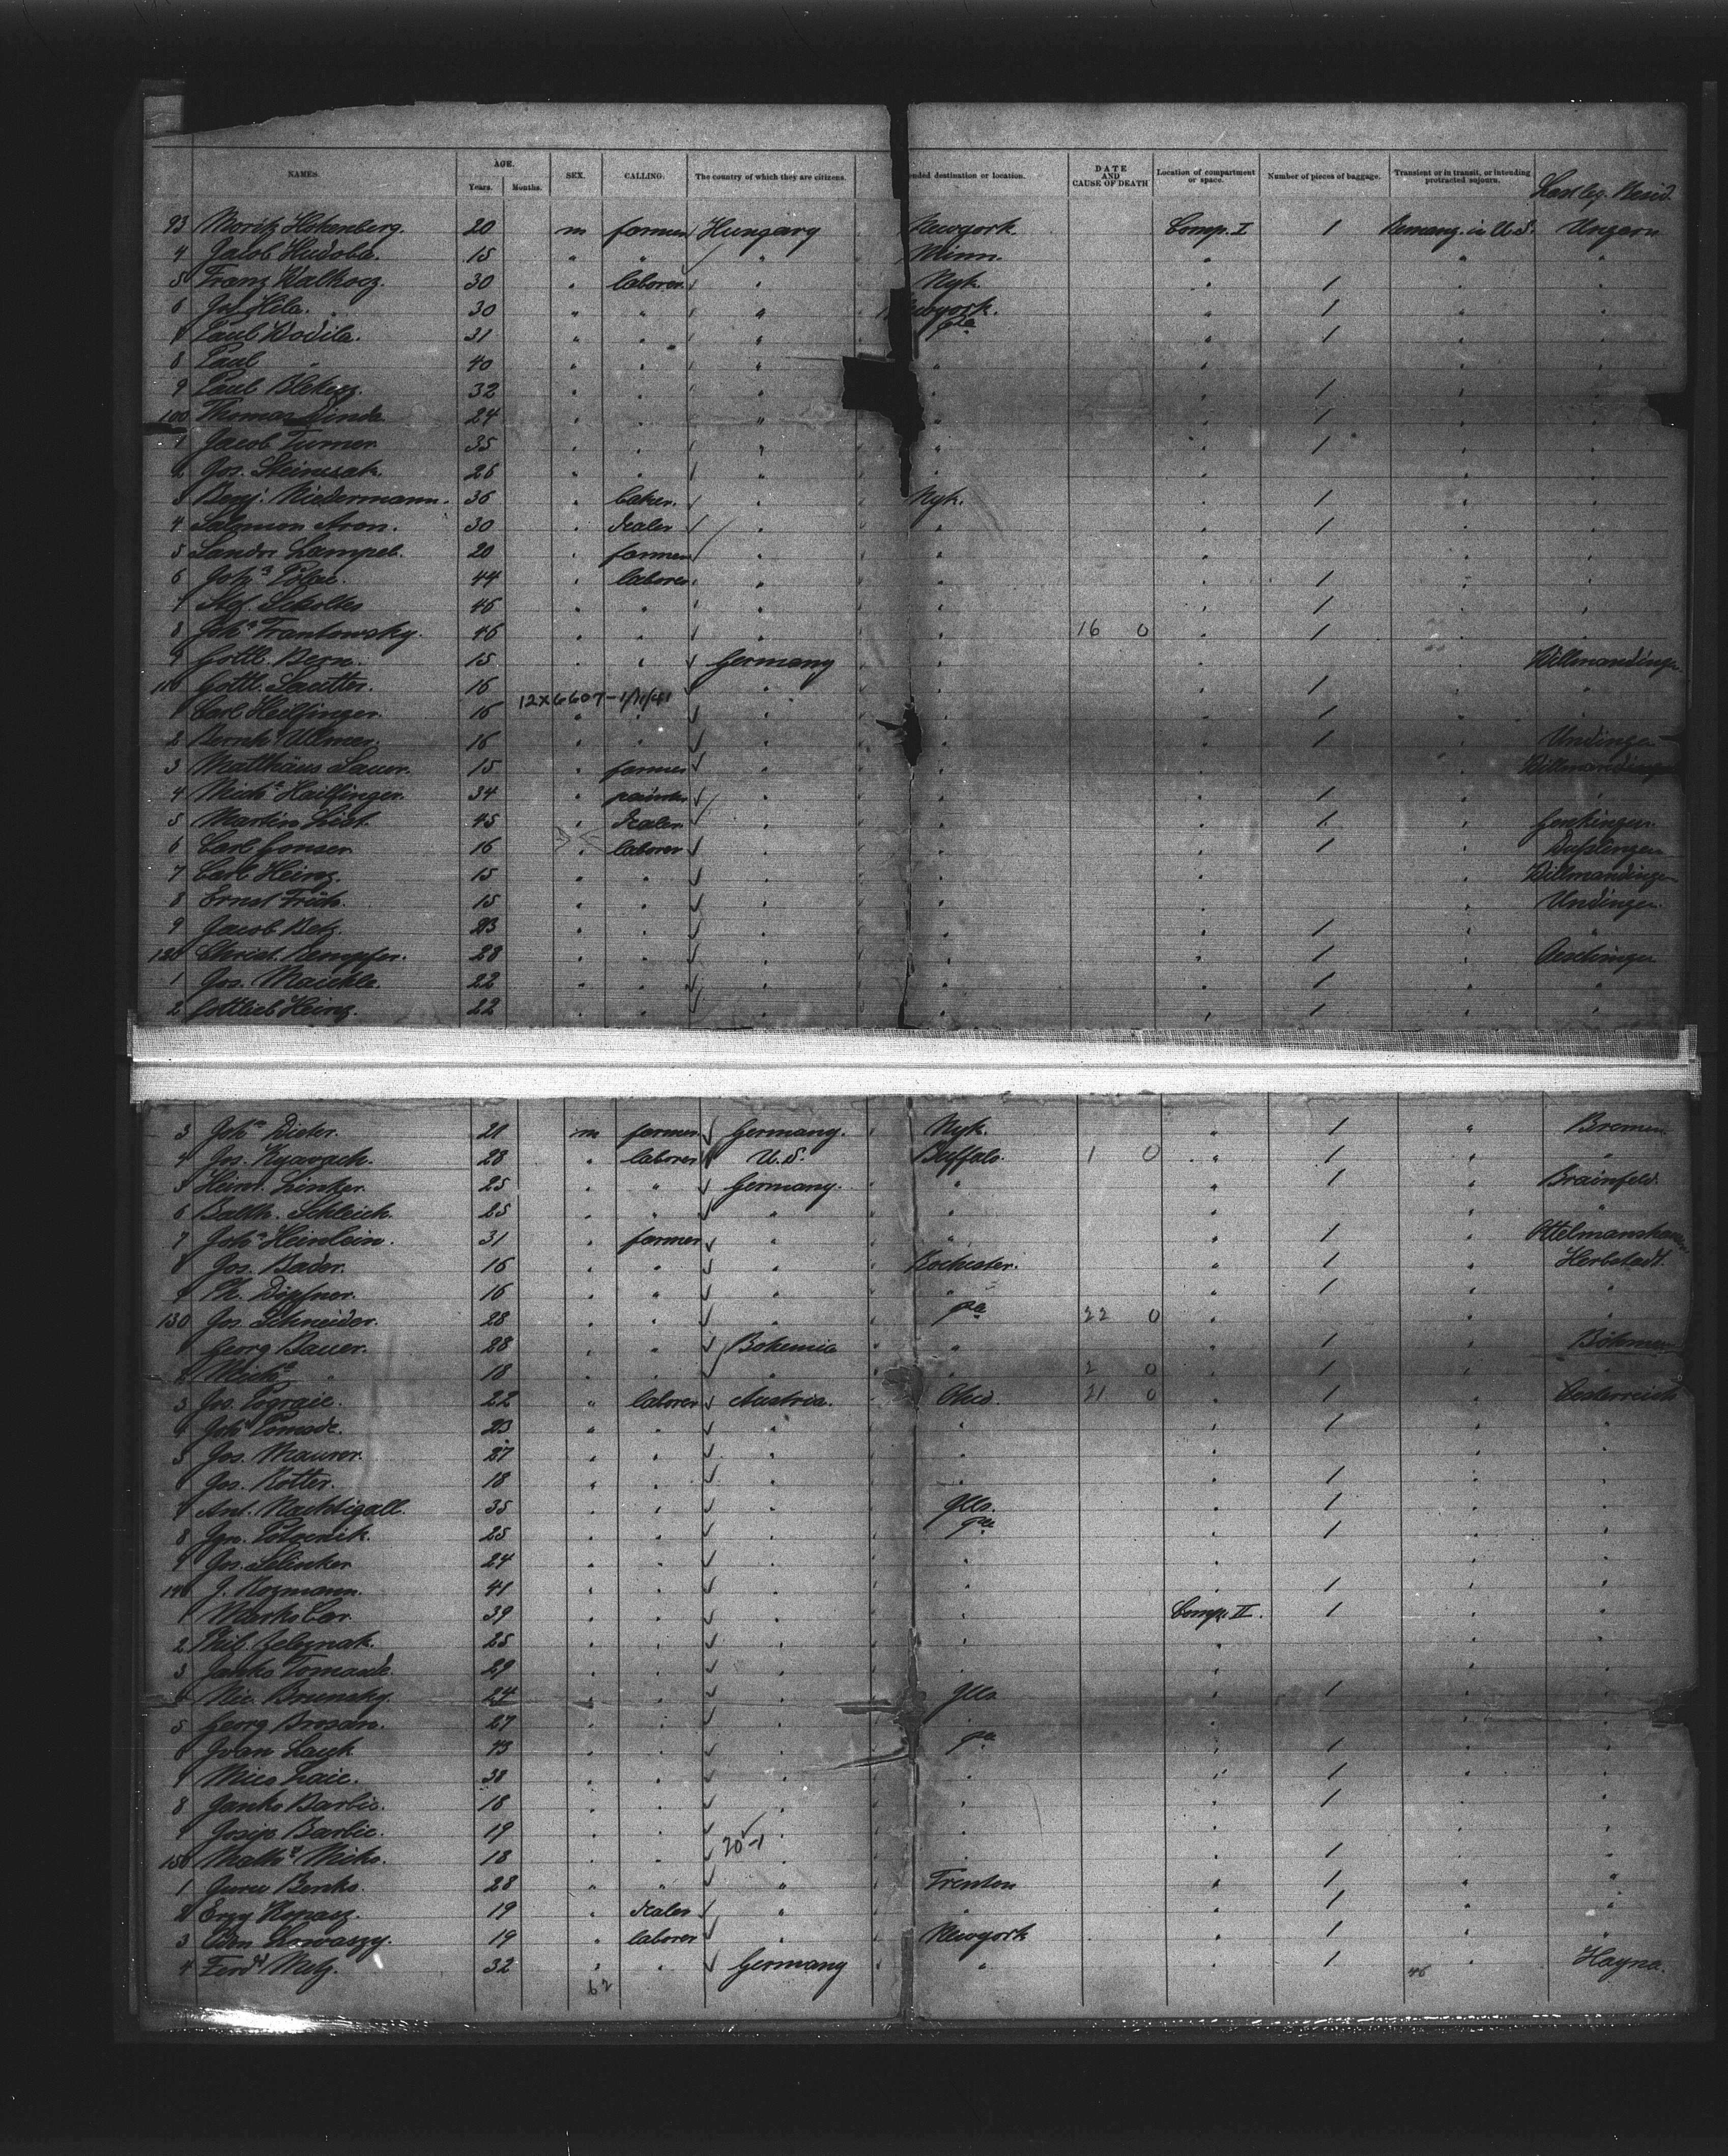 NAMES. AGE. Years. Months. SEX. CALLING. The country of which they are citizens. ended destination or location. DATE AND CAUSE OF DEATH Location of compartment or space. Number of pieces of baggage. Transient or in transit, or intending protracted sojourn. Last leg. Resid.
93 Moritz Hokenberg. 20 m farmer Hungary Newyork. Comp. I 1 Remang. in U.S. Ungarn
4 Jacob Hudoba. 15 " " " Minn. " " "
5 Franz Walkocz. 30 " laborer " Nyk. " 1 " "
6 Jos. Hila. 30 " " " ewyork. " 1 " "
7 Paul Wodila. 31 " " " pa " 1 " "
8 Paul " 40 " " " " " " "
9 Paul 32 " " " " " 1 " "
100 Thomas Dinda 24 " " " " " 1 " "
1 Jacob Turner 35 " " " " " 1 " "
2 Jos. 26 " " " " " " "
3 Benj. Niedermann. 36 " baker. " Nyk. " 1 " "
4 Salomon Aron. 30 " dealer " " " 1 " "
5 Sandor Lampel. 20 " farmer " " " " "
6 Joh.s Polac. 44 " laborer " " " 1 " "
7 Stef. Scholtes 46 " " " " " 1 " "
8 Joh.s Trantowsky. 46 " " " " 16 0 " 1 " "
9 Gottl. Bezn. 15 " " Germany " " " Willmandingen
110 Gottl. Sautter. 16 " " " " " 1 " "
12X6607-1/11/41
1 Carl Heilfinger. 16 " " " " " 1 " "
2 Bernh.d Ullmer. 16 " " " " " 1 " Undingen
3 Matthäus Sauer. 15 " farmer " " " " Willmandingen
4 Mich.l Hailfinger. 34 " painter " " " 1 " "
5 Martin List. 45 " dealer " " " 1 " Genkingen
6 Carl Gonser 16 " laborer " " " 1 " Dusslingen
7 Carl Heinz. 15 " " " " " " Willmandingen
8 Ernst Früh. 15 " " " " " " Undingen
9 Jacob Betz. 23 " " " " " 1 " "
120 Christ. Kempfer. 28 " " " " " 1 " Oeschingen
1 Jos. Maichle. 22 " " " " " 1 " "
2 Gottlieb Heinz. 22 " " " " " 1 " "
3 Joh.n Dieter. 21 m farmer Germany. Nyk. " 1 " Bremen
4 Jos. Nyavach. 28 " laborer U.S. Buffalo. 1 0 " 1 " "
5 Heinr. Linker. 25 " " Germany. " " 1 " Brainfeld.
6 Balth. Schleich. 25 " " " " " " "
7 Joh.n Heinlein. 31 " farmer " " " 1 " Ottelmanshausen
8 Jos. Bader. 16 " " " Rochester. " 1 " Herbstadt.
9 Ph. Dipfner. 16 " " " " " 1 " "
130 Jos. Schneider. 28 " " " pa 22 0 " " "
1 Georg Bauer. 28 " " Bohemia " " 1 " Böhmen
2 Mich.l " 18 " " " " 2 0 " 1 " "
3 Jos. Pograic. 22 " laborer Austria. Ohio. 21 0 " 1 " Oesterreich
4 Joh. Tomade. 23 " " " " " 1 " "
5 Jos. Maurer. 27 " " " " " " "
6 Jos. Kotter. 18 " " " " " 1 " "
7 Ant. Nachtigall. 35 " " " Ills. " 1 " "
8 Ign. Potocnik. 25 " " " pa " 1 " "
9 Jos. Schinker 24 " " " " " " "
140 J. Kozmann. 41 " " " " " 1 " "
1 Marko Car. 39 " " " " Comp. II. 1 " "
2 Phil. Zeleznak. 25 " " " " " " "
3 Janko Tomasic. 29 " " " " " " "
4 Nic. Brunsky. 24 " " " Ills " 1 " "
5 Georg Brosan. 27 " " " " " " "
6 Ivan Lack 43 " " " pa " 1 " "
7 Mico Laic. 38 " " " " " 1 " "
8 Janko Barbic. 18 " " " " " 1 " "
9 Josip Barbic. 19 " " " " " " "
20-1
150 Math.s Miko. 18 " " " " 1 " "
1 Juru Benko. 28 " " " Trenton " 1 " "
2 19 " dealer " " " 1 " "
3 19 " laborer " Newyork " 1 " "
4 Ferd.d Metz. 32 " " Germany " " 1 " Hayna.
62 46